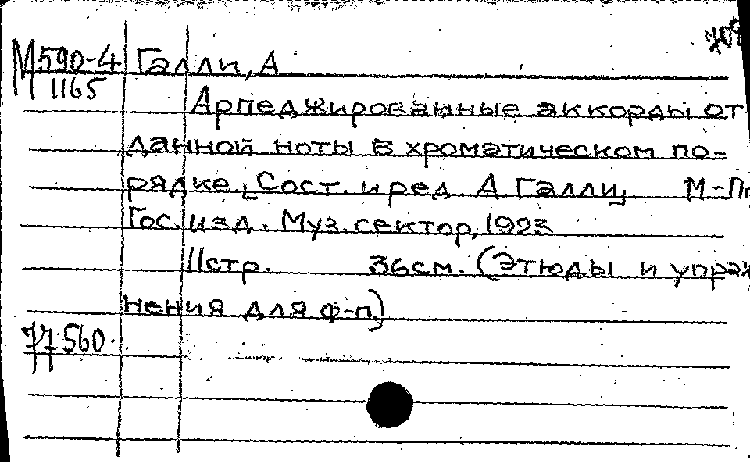 М590-4 Галли, А
1165
Арпеджированные аккорды от
данной ноты в хроматическом по-
рядке [Сост. и ред. А Галли] М-Пг
Гос. изд. Муз. сектор, 1923
11 стр. 36 см. (Этюды и упраж
нения для ф-п)
560